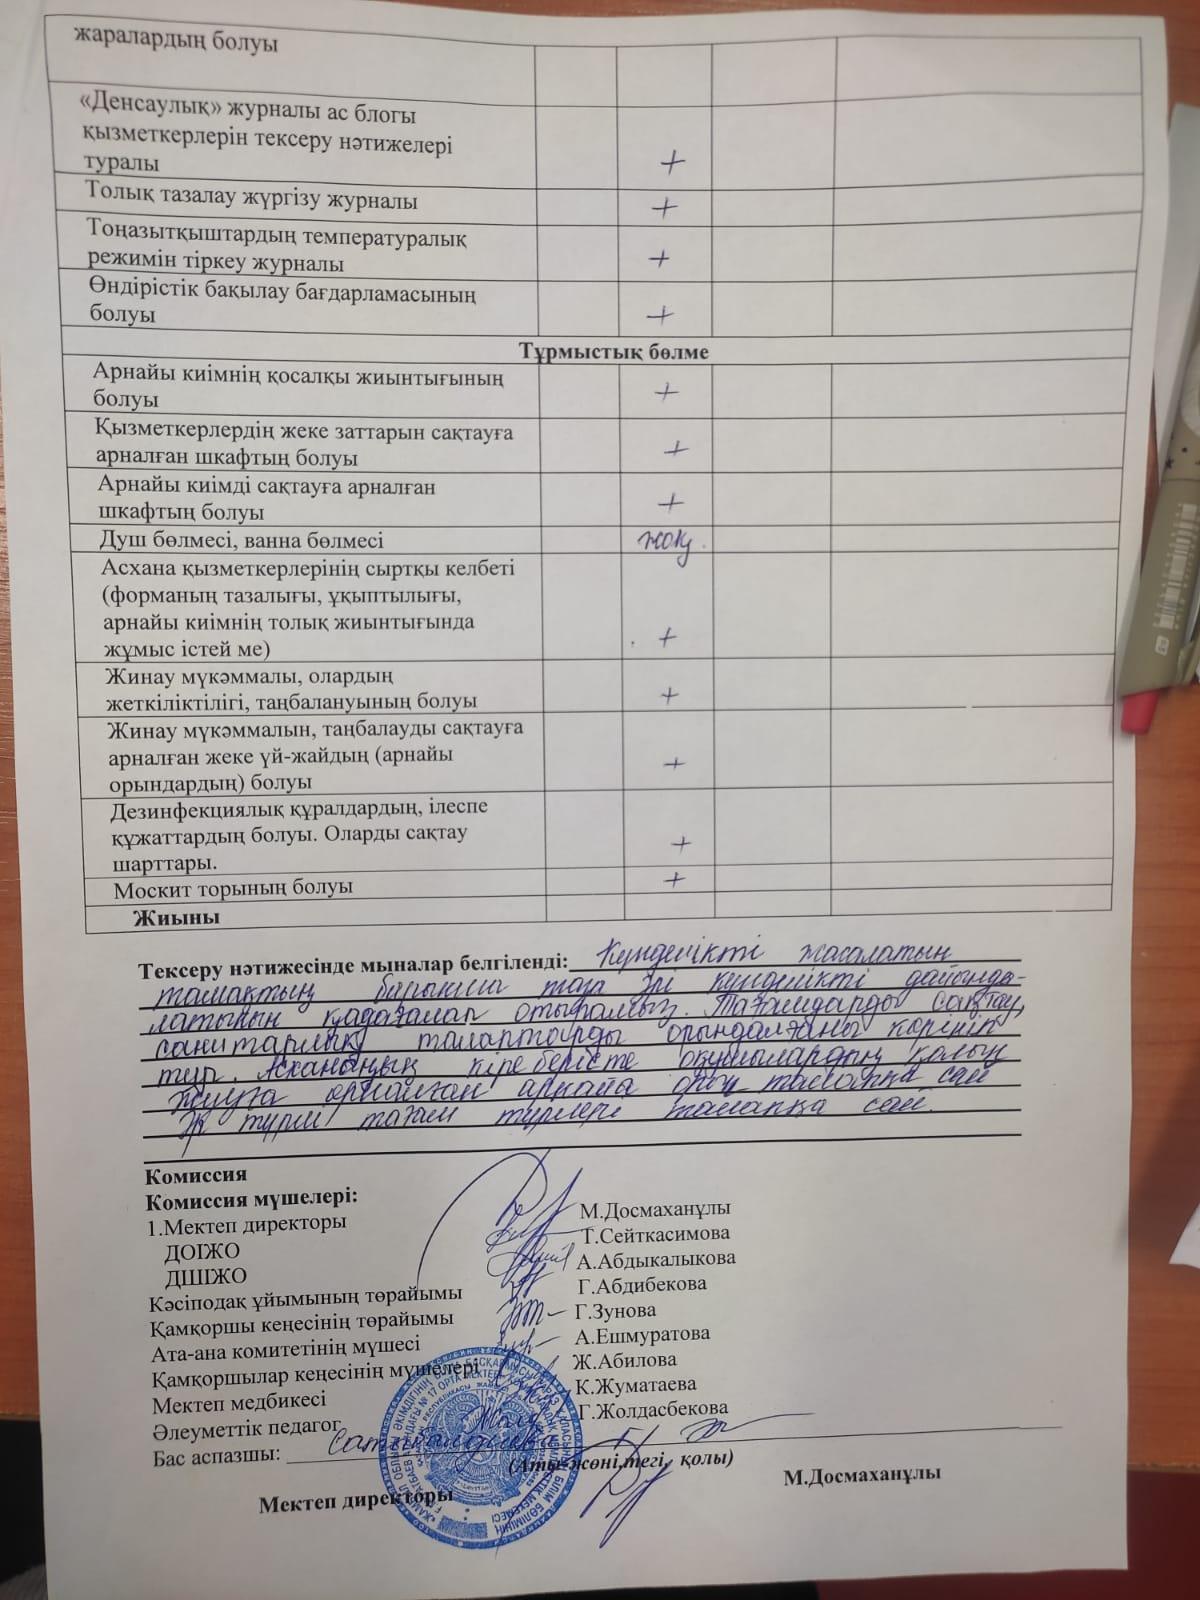 жаралардың болуы
«Денсаулық» журналы ас блогы
қызметкерлерін тексеру нәтижелері
туралы +
Толық тазалау жүргізу журналы +
Тоңазытқыштардың температуралық
режимін тіркеу журналы +
Өндірістік бақылау бағдарламасының
болуы +
Тұрмыстық бөлме
Арнайы киімнің қосалқы жиынтығының
болуы +
Қызметкерлердің жеке заттарын сақтауға
арналған шкафтың болуы +
Арнайы киімді сақтауға арналған
шкафтың болуы +
Душ бөлмесі, ванна бөлмесі жоқ.
Асхана қызметкерлерінің сыртқы келбеті
(форманың тазалығы, ұқыптылығы,
арнайы киімнің толық жиынтығында
жұмыс істей ме) +
Жинау мүкәммалы, олардың
жеткіліктілігі, таңбалануының болуы +
Жинау мүкәммалын, таңбалауды сақтауға
арналған жеке үй-жайдың (арнайы
орындардың) болуы +
Дезинфекциялық құралдардың, ілеспе
құжаттардың болуы. Оларды сақтау
шарттары. +
Москит торының болуы +
Жиыны
Тексеру нәтижесінде мыналар белгіленді: Күнделікті жасалатын
тамақтың барынша таза әрі күнделікті дайында-
латынын қадағалап отырамыз. Тағамдарды сақтау,
санитарлық талаптарды орындалғаны көрініп
тұр. Асхананың кіреберісте оқушылардың қолын
жууға арналған арнайы орын талапқа сай
Әр түрлі тағам түрлері талапқа сай.
Комиссия
Комиссия мүшелері:
1.Мектеп директоры М.Досмаханұлы
ДОІЖО Т.Сейткасимова
ДІШІЖО А.Абдыкалыкова
Кәсіподақ ұйымының төрайымы Г.Абдибекова
Қамқоршы кеңесінің төрайымы Г.Зунова
Ата-ана комитетінің мүшесі А.Ешмуратова
Қамқоршылар кеңесінің мүшелері Ж.Абилова
Мектеп медбикесі К.Жуматаева
Әлеуметтік педагог Г.Жолдасбекова
Бас аспазшы:
(Аты-жөні,тегі, қолы)
Мектеп директоры М.Досмаханұлы